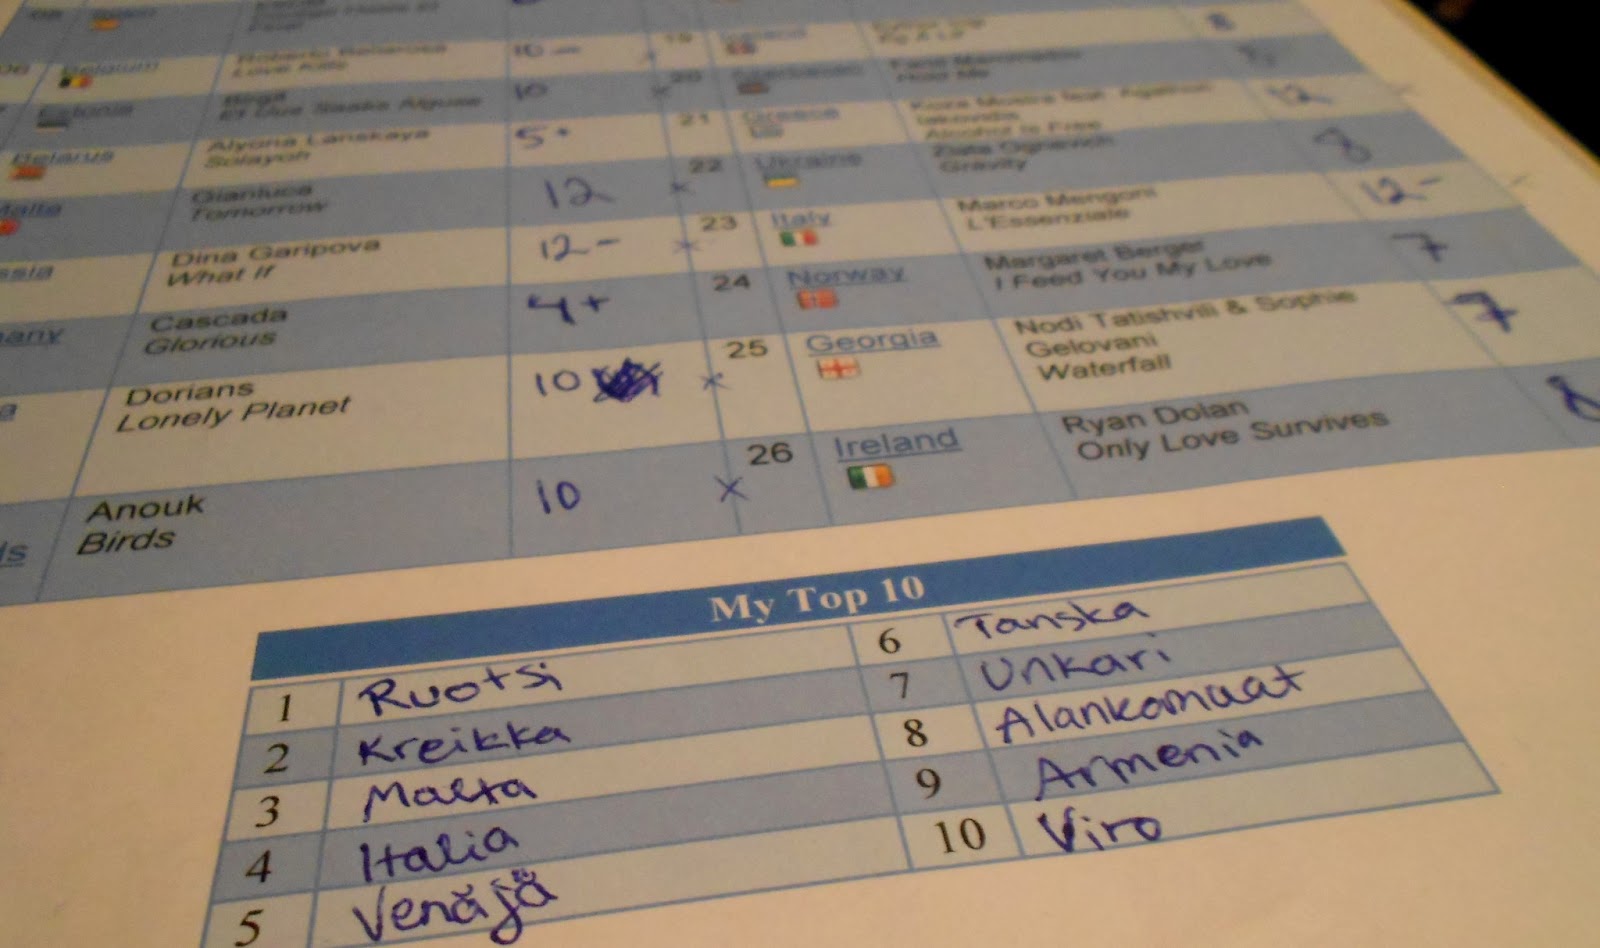 Belgium Roberto Bellarosa 10 - x 19
Love Kills
Estonia Birgit 10 x 20
Et Uus Saaks Alguse Hold Me
Belarus Alyona Lanskaya 5+ 21 Greece Koza Mostra feat. Agathon 12
Solayoh Iakovidis
Alcohol Is Free
Malta Gianluca 12 x 22 Ukraine Zlata Ognevich 8
Tomorrow Gravity
ssia Dina Garipova 12- x 23 Italy Marco Mengoni 12-
What If L'Essenziale
many Cascada 4+ 24 Norway Margaret Berger 7
Glorious I Feed You My Love
a Dorians 10 x 25 Georgia Nodi Tatishvili & Sophie 7
Lonely Planet Gelovani
Waterfall
ds Anouk 10 x 26 Ireland Ryan Dolan 8
Birds Only Love Survives
My Top 10
1 Ruotsi
2 Kreikka
3 Malta
4 Italia
5 Venäjä
6 Tanska
7 Unkari
8 Alankomaat
9 Armenia
10 Viro